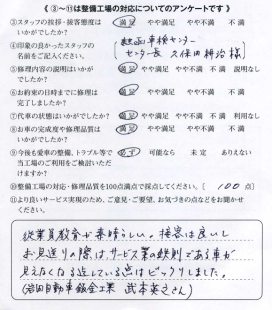 《 ③〜⑪は整備工場の対応についてのアンケートです 》
③スタッフの挨拶・接客態度は 満足 やや満足 やや不満 不満
いかがでしたか?
④印象の良かったスタッフの
名前をご記入ください。 センター長 久保田
⑤修理内容の説明はいかが 満足 やや満足 やや不満 不満 説明なし
でしたか?
⑥お約束の日時までに修理は 満足 やや満足 やや不満 不満
完了しましたか?
⑦代車の状態はいかがでしたか? 満足 やや満足 やや不満 不満 利用なし
⑧お車の完成度や修理品質は 満足 やや満足 やや不満 不満
いかがでしたか?
⑨今後も愛車の整備、トラブル等で 必ず 可能なら 未定 ありえない
当工場のご利用をご検討いただ
けますか?
⑩整備工場の対応・修理品質を100点満点で採点してください。〔 100 点〕
⑪より良いサービス実現のため、ご意見・ご要望、お気づきの点などをお聞かせ
ください。
従業員教育が素晴らしい。接客は良いし
お見送りの際はサービス業の鉄則である車が
見えなくなる迄している点はビックリしました。
(岩田自動車鈑金工業 武本 さん)